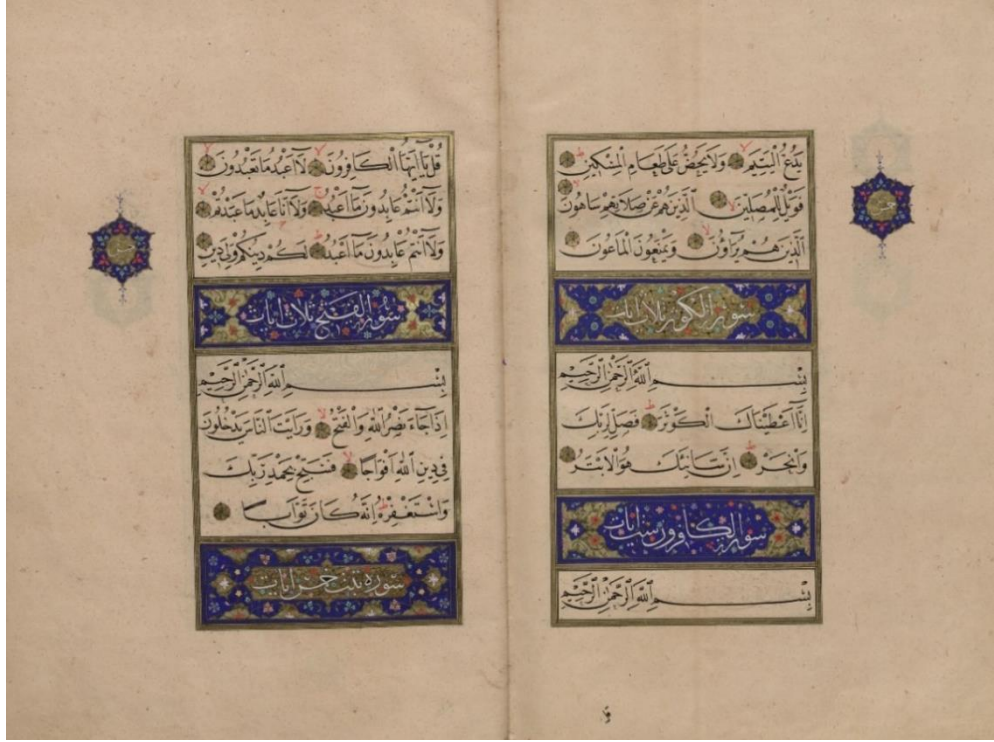 يَدُعُّ الْيَتِيمَ وَلَا يَحُضُّ عَلَى طَعَامِ الْمِسْكِينِ
فَوَيْلٌ لِلْمُصَلِّينَ الَّذِينَ هُمْ عَنْ صَلَاتِهِمْ سَاهُونَ
الَّذِينَ هُمْ يُرَاؤُنَ وَيَمْنَعُونَ الْمَاعُونَ
سورة الكوثر ثلاث ايات
بِسْمِ اللَّهِ الرَّحْمَنِ الرَّحِيمِ
اِنَّا اَعْطَيْنَاكَ الْكَوْثَرَ فَصَلِّ لِرَبِّكَ
وَانْحَرْ اِنَّ شَانِئَكَ هُوَ الْاَبْتَرُ
سورة الكافرون ست ايات
بِسْمِ اللَّهِ الرَّحْمَنِ الرَّحِيمِ
قُلْ يَا اَيُّهَا الْكَافِرُونَ لَا اَعْبُدُ مَا تَعْبُدُونَ
وَلَا اَنْتُمْ عَابِدُونَ مَا اَعْبُدُ وَلَا اَنَا عَابِدٌ مَا عَبَدْتُمْ
وَلَا اَنْتُمْ عَابِدُونَ مَا اَعْبُدُ لَكُمْ دِينُكُمْ وَلِيَ دِينِ
سورة الفتح ثلاث ايات
بِسْمِ اللَّهِ الرَّحْمَنِ الرَّحِيمِ
اِذَا جَاءَ نَصْرُ اللَّهِ وَالْفَتْحُ وَرَاَيْتَ النَّاسَ يَدْخُلُونَ
فِي دِينِ اللَّهِ اَفْوَاجًا فَسَبِّحْ بِحَمْدِ رَبِّكَ
وَاسْتَغْفِرْهُ اِنَّهُ كَانَ تَوَّابًا
سورة تبت خمس ايات